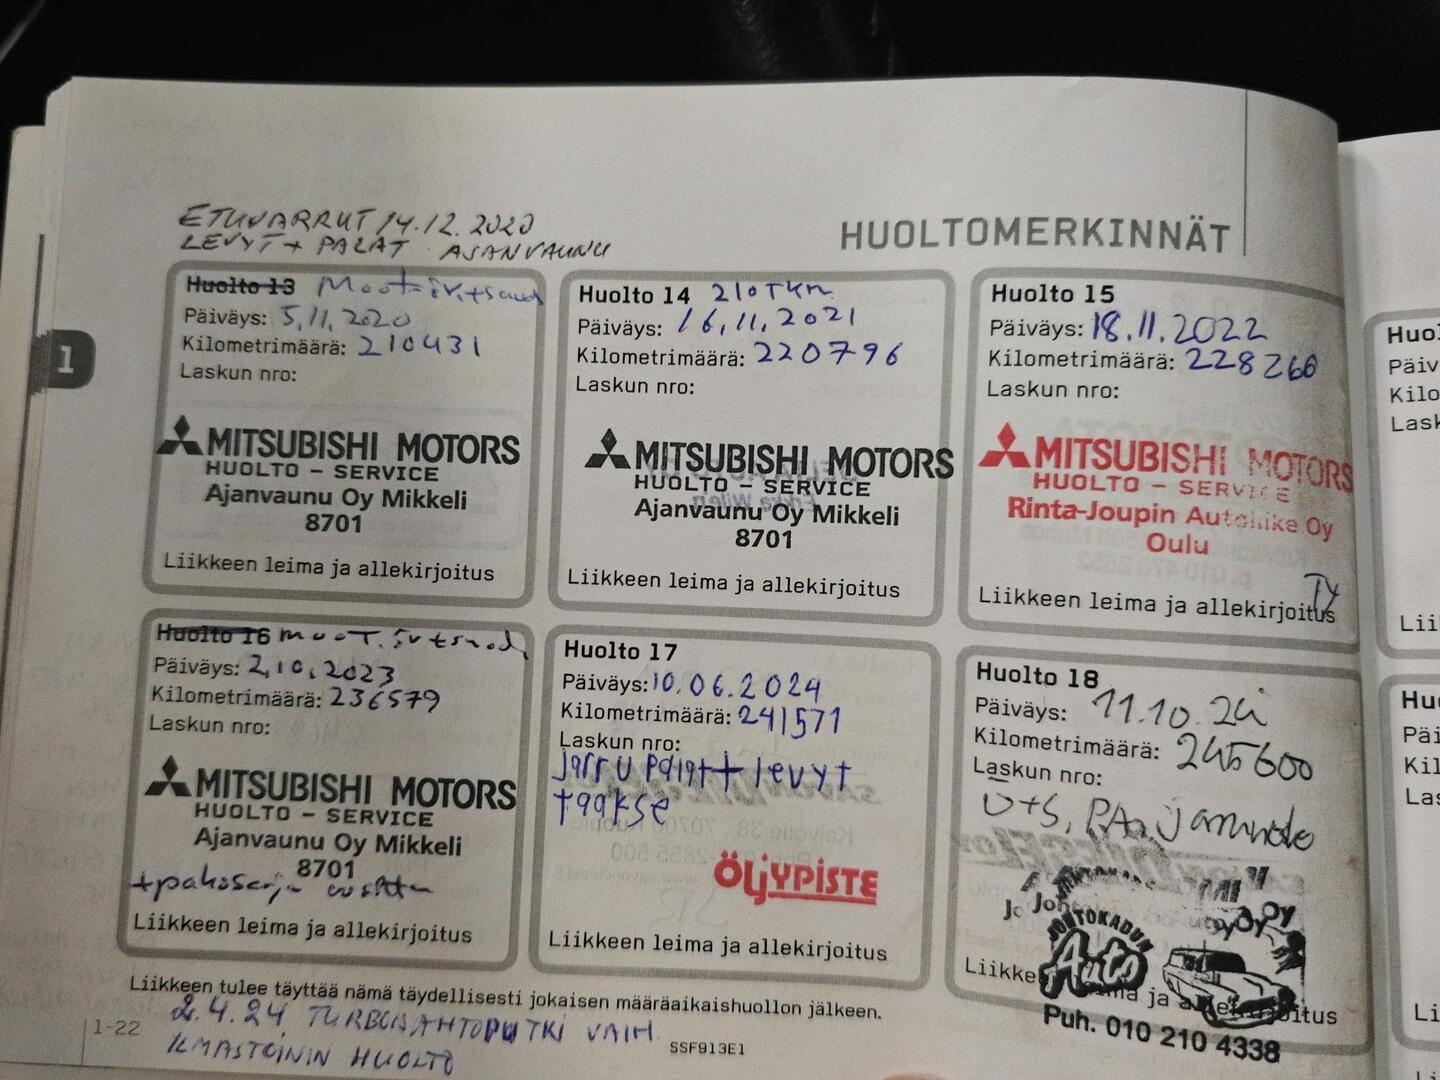 ETUVARRUT 14.12.2020
LEVYT + PALAT AJANVAUNU
HUOLTOMERKINNÄT
1
Huolto 13
Päiväys: 5.11.2020
Kilometrimäärä: 210431
Laskun nro:
MITSUBISHI MOTORS
HUOLTO - SERVICE
Ajanvaunu Oy Mikkeli
8701
Liikkeen leima ja allekirjoitus
Huolto 14 210TKM
Päiväys: 16.11.2021
Kilometrimäärä: 220796
Laskun nro:
MITSUBISHI MOTORS
HUOLTO - SERVICE
Ajanvaunu Oy Mikkeli
8701
Liikkeen leima ja allekirjoitus
Huolto 15
Päiväys: 18.11.2022
Kilometrimäärä: 228260
Laskun nro:
MITSUBISHI MOTORS
HUOLTO - SERVICE
Rinta-Joupin Autoliike Oy
Oulu
Liikkeen leima ja allekirjoitus
Huolto 16
Päiväys: 2.10.2023
Kilometrimäärä: 236579
Laskun nro:
MITSUBISHI MOTORS
HUOLTO - SERVICE
Ajanvaunu Oy Mikkeli
8701
Liikkeen leima ja allekirjoitus
Huolto 17
Päiväys: 10.06.2024
Kilometrimäärä: 241571
Laskun nro:
Jarru palat + levyt
taakse
ÖLJYPISTE
Liikkeen leima ja allekirjoitus
Huolto 18
Päiväys: 11.10.24
Kilometrimäärä: 245600
Laskun nro:
Ö+S,
JOHTOKADUN
Auto
Puh. 010 210 4338
Liikkeen tulee täyttää nämä täydellisesti jokaisen määräaikaishuollon jälkeen.
2.4.24 TURBONAHTOPUTKI VAIH
1-22
ILMASTOINNIN HUOLTO
SSF913E1